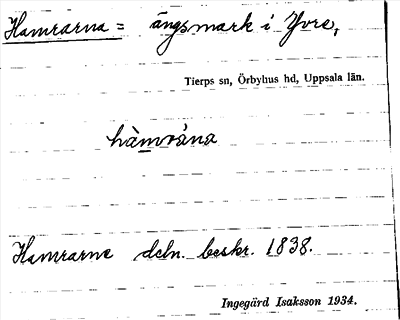 Hamrarna = ängsmark i Yvre,
Tierps sn, Örbyhus hd, Uppsala län.
hàmrána
Hamrarne deln. beskr. 1838.
Ingegärd Isaksson 1934.